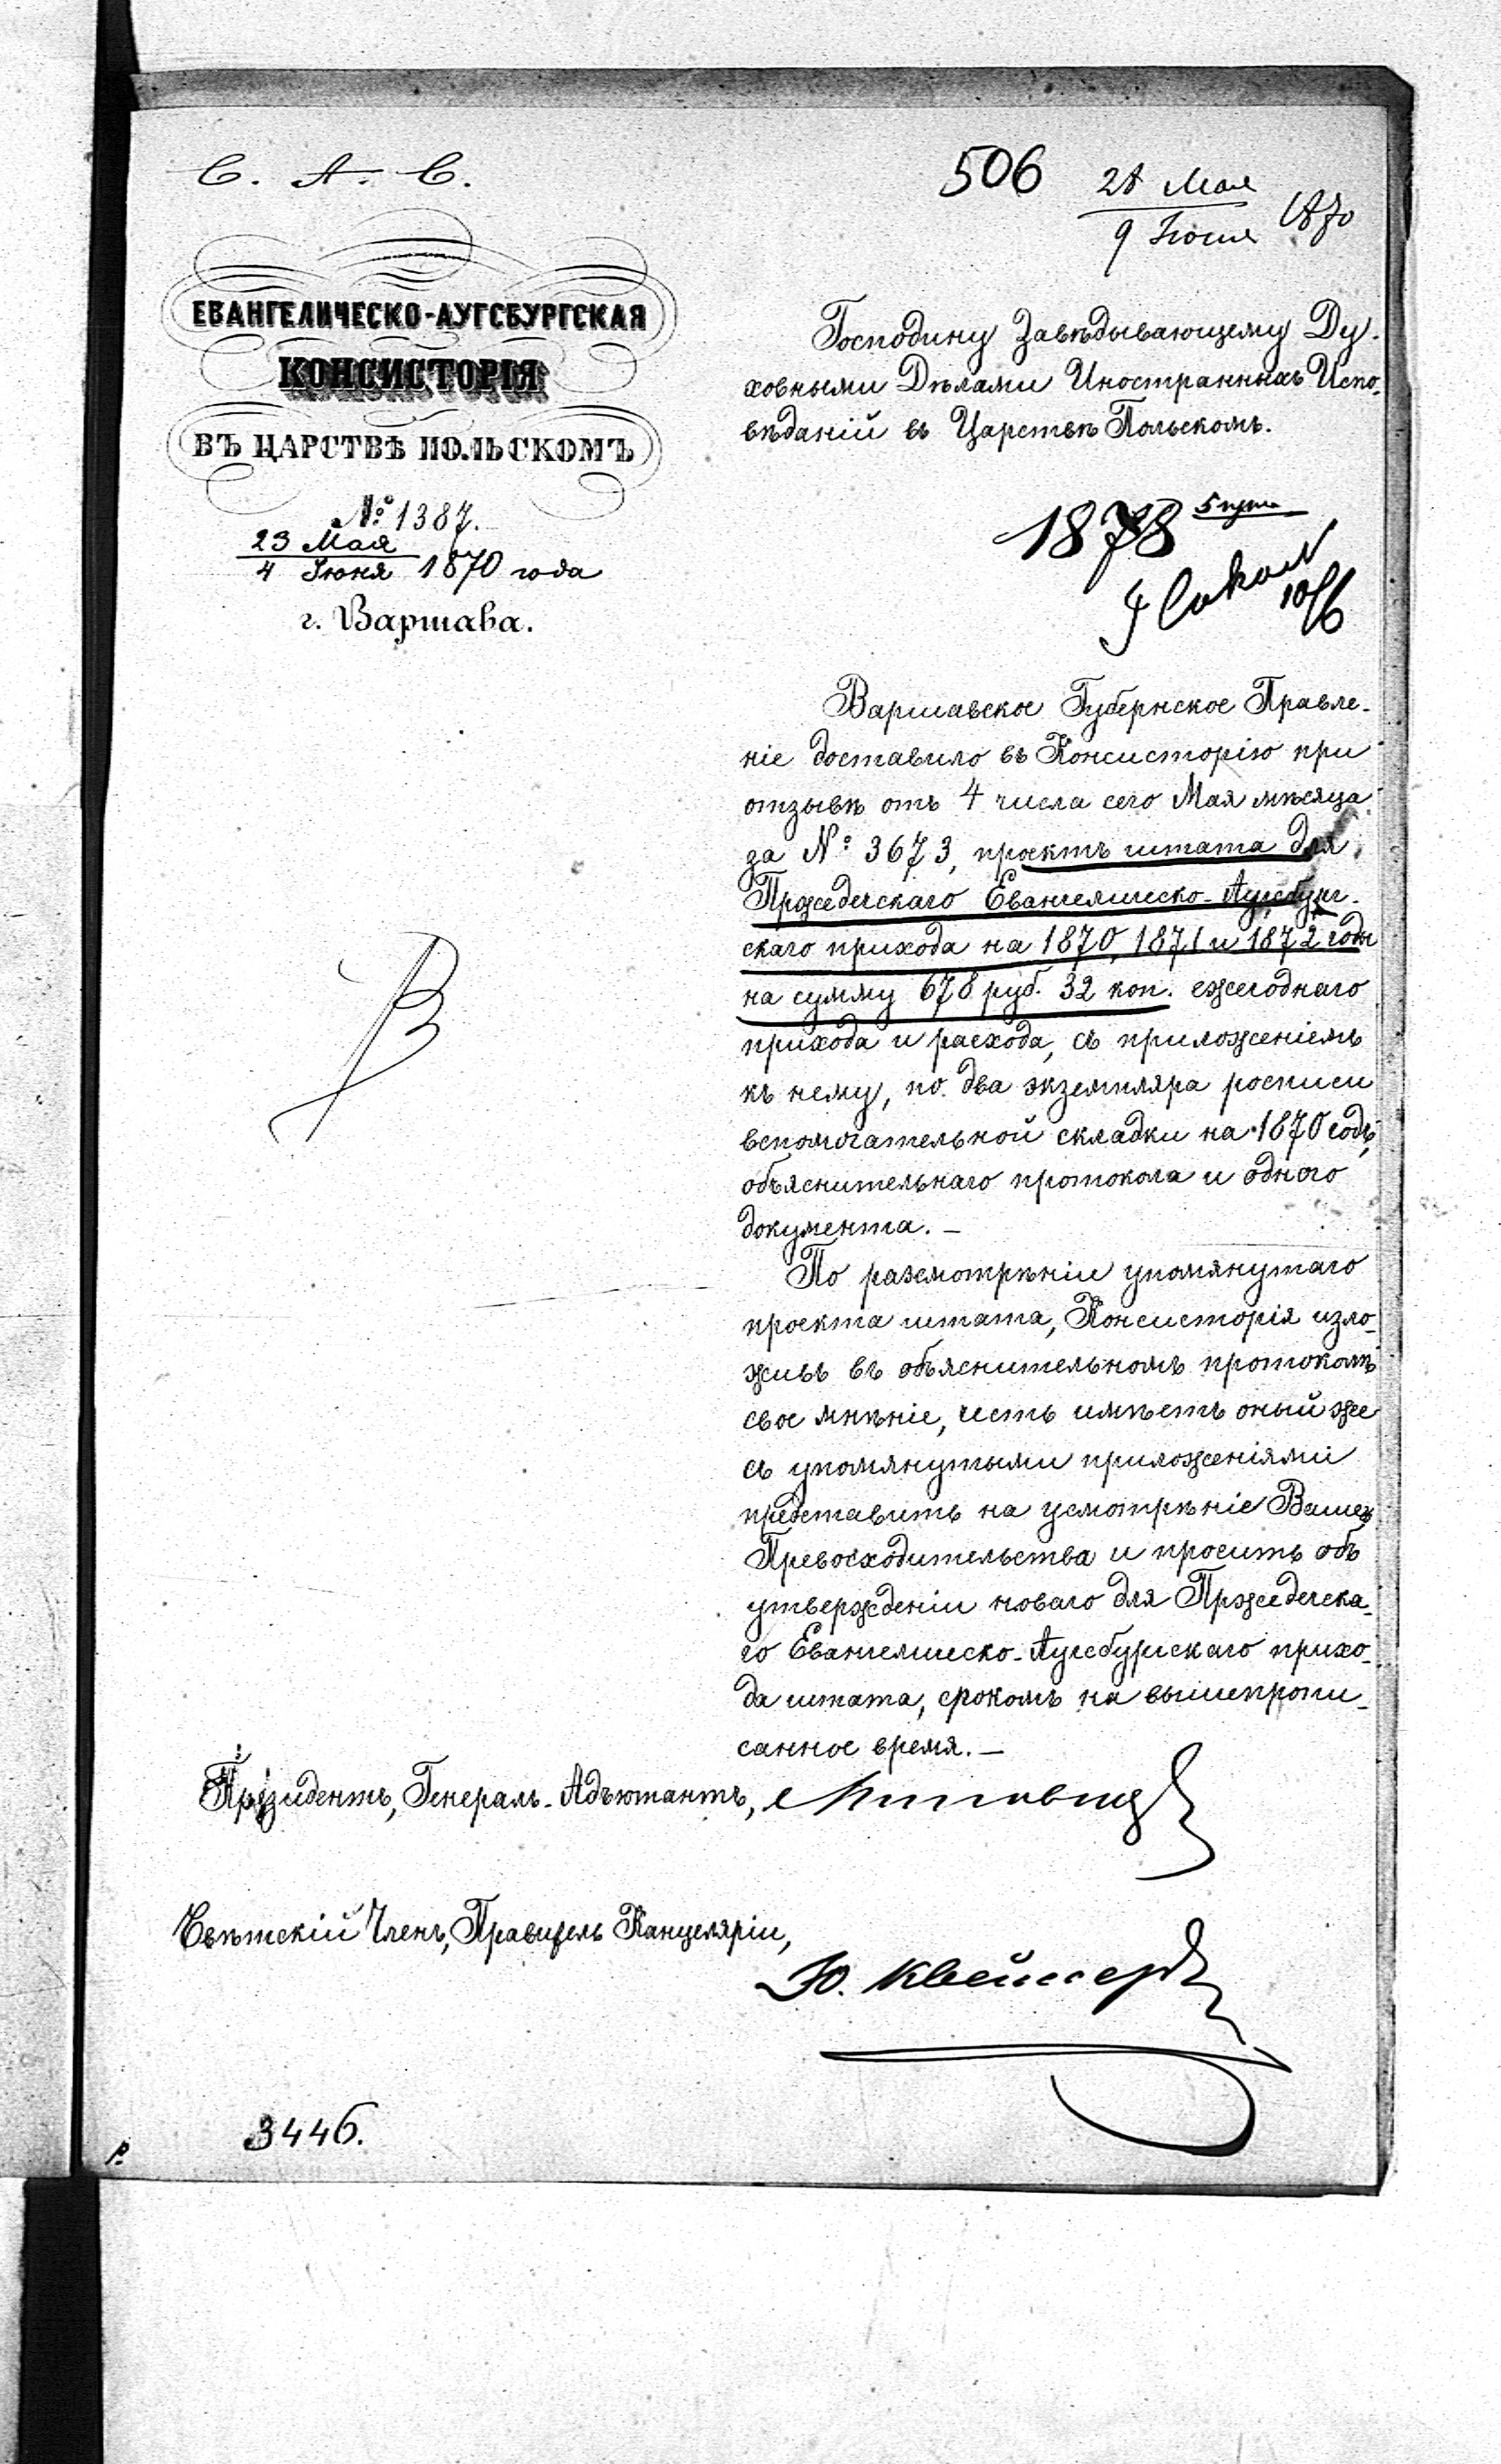 С. А. С.
506
28 Мая
9 Июня 1870
ЕВАНГЕЛИЧЕСКО-АУГСБУРГСКАЯ
КОНСИСТОРІЯ
ВЪ ЦАРСТВѢ ПОЛЬСКОМЪ
№ 1387.
23 Мая
4 Іюня 1870 года
г. Варшава.
Господину Завѣдывающему Ду-
ховными Дѣлами Иностранныхъ Испо-
вѣданій въ Царствѣ Польскомъ.
1878
10/6
Варшавское Губернское Правле-
ніе доставило въ Консисторію при
отзывѣ отъ 4 числа сего Мая мѣсяца
за № 3673, проектъ штата для
Пржедечскаго Евангелическо-Аугсбург-
скаго прихода на 1870, 1871 и 1872 годы
на сумму 678 руб. 32 коп. ежегоднаго
прихода и расхода, съ приложеніемъ
къ нему, по два экземпляра росписи
вспомогательной складки на 1870 годъ,
объяснительнаго протокола и одного
документа. —
По разсмотрѣніи упомянутаго
проекта штата, Консисторія изло-
живъ въ объяснительномъ протоколѣ
свое мнѣніе, честь имѣетъ оный же
съ упомянутыми приложеніями
представить на усмотрѣніе Вашего
Превосходительства и просить объ
утвержденіи новаго для Пржедечска-
го Евангелическо-Аугсбургскаго прихо-
да штата, срокомъ на вышепропи-
санное время. —
Президентъ, Генералъ-Адъютантъ,
Свѣтскій Членъ, Правитель Канцеляріи,
Ю.
3446.